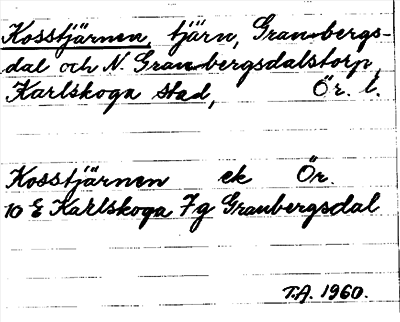 Kosstjärnen, tjärn, Granbergs-
dal och N. Granbergsdalstorp,
Karlskoga stad, Ör. l.
Kosstjärnen ek Ör.
10 E Karlskoga 7g Granbergsdal
T.A. 1960.